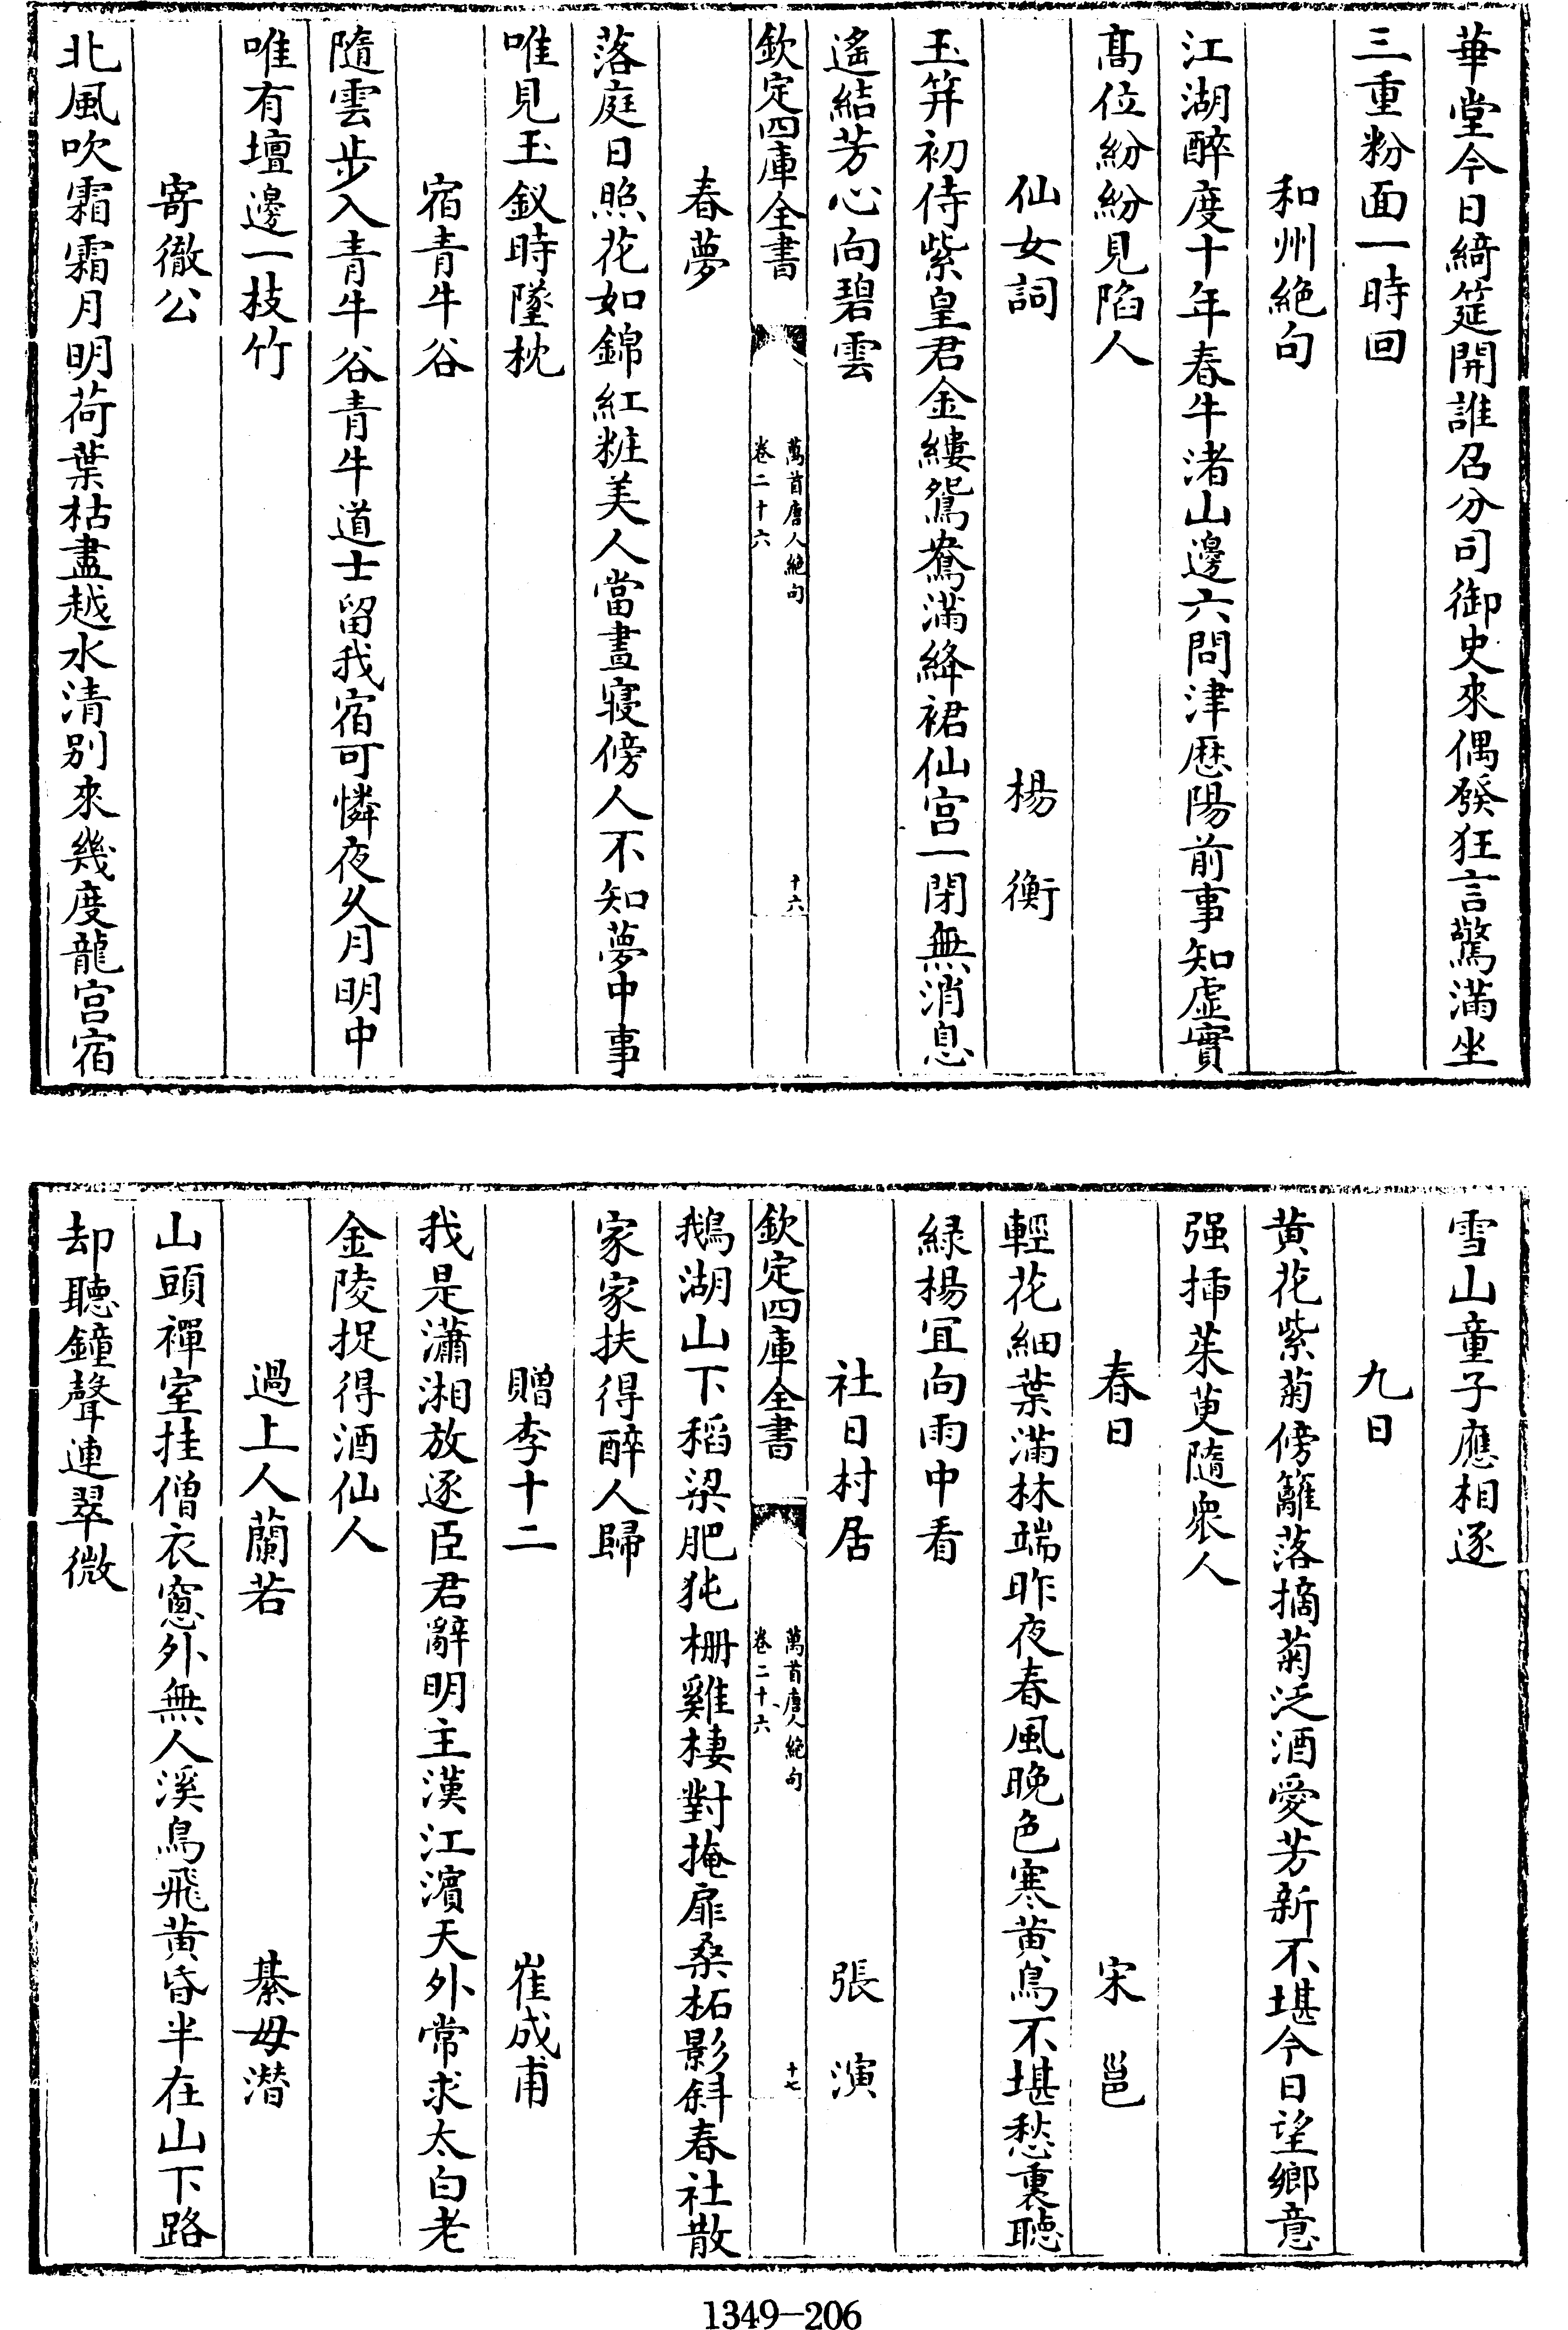 華堂今日綺筵開誰召分司御史來偶發狂言驚滿坐
三重粉面一時回
和州絶句
江湖醉度十年春牛渚山邊六問津歴陽前事知虚實
髙位紛紛見陷人
仙女詞　楊衡
玉笄初侍紫皇君金縷鴛鴦滿絳裙仙宫一閉無消息
遙結芳心向碧雲
欽定四庫全書
萬首唐人絶句
卷二十六
十六
春夢
落庭日照花如錦紅粧美人當晝寢傍人不知夢中事
唯見玉釵時墜枕
宿青牛谷
隨雲步入青牛谷青牛道士留我宿可憐夜乆月明中
唯有壇邊一枝竹
寄徹公
北風吹霜霜月明荷葉枯盡越水清别來幾度龍宫宿
雪山童子應相逐
九日
黄花紫菊傍籬落摘菊泛酒愛芳新不堪今日望鄉意
强挿茱萸隨衆人
春日　宋邕
輕花細葉滿林端昨夜春風晚色寒黄鳥不堪愁裏聽
緑楊宜向雨中看
社日村居　張演
欽定四庫全書
萬首唐人絶句
卷二十六
十七
鵝湖山下稻粱肥㹠柵雞棲對掩扉桑柘影斜春社散
家家扶得醉人歸
贈李十二　崔成甫
我是瀟湘放逐臣君辭明主漢江濵天外常求太白老
金陵捉得酒仙人
過上人蘭若　綦毋潜
山頭禪室挂僧衣窻外無人溪鳥飛黄昏半在山下路
却聽鐘聲連翠微
1349-206